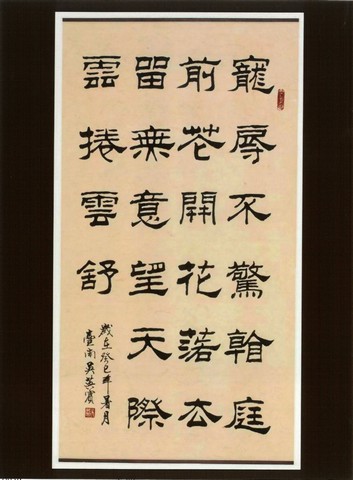 寵辱不驚看庭
前花開花落去
留無意望天際
雲捲雲舒
歲在癸巳年暑月
臺南吳英賓